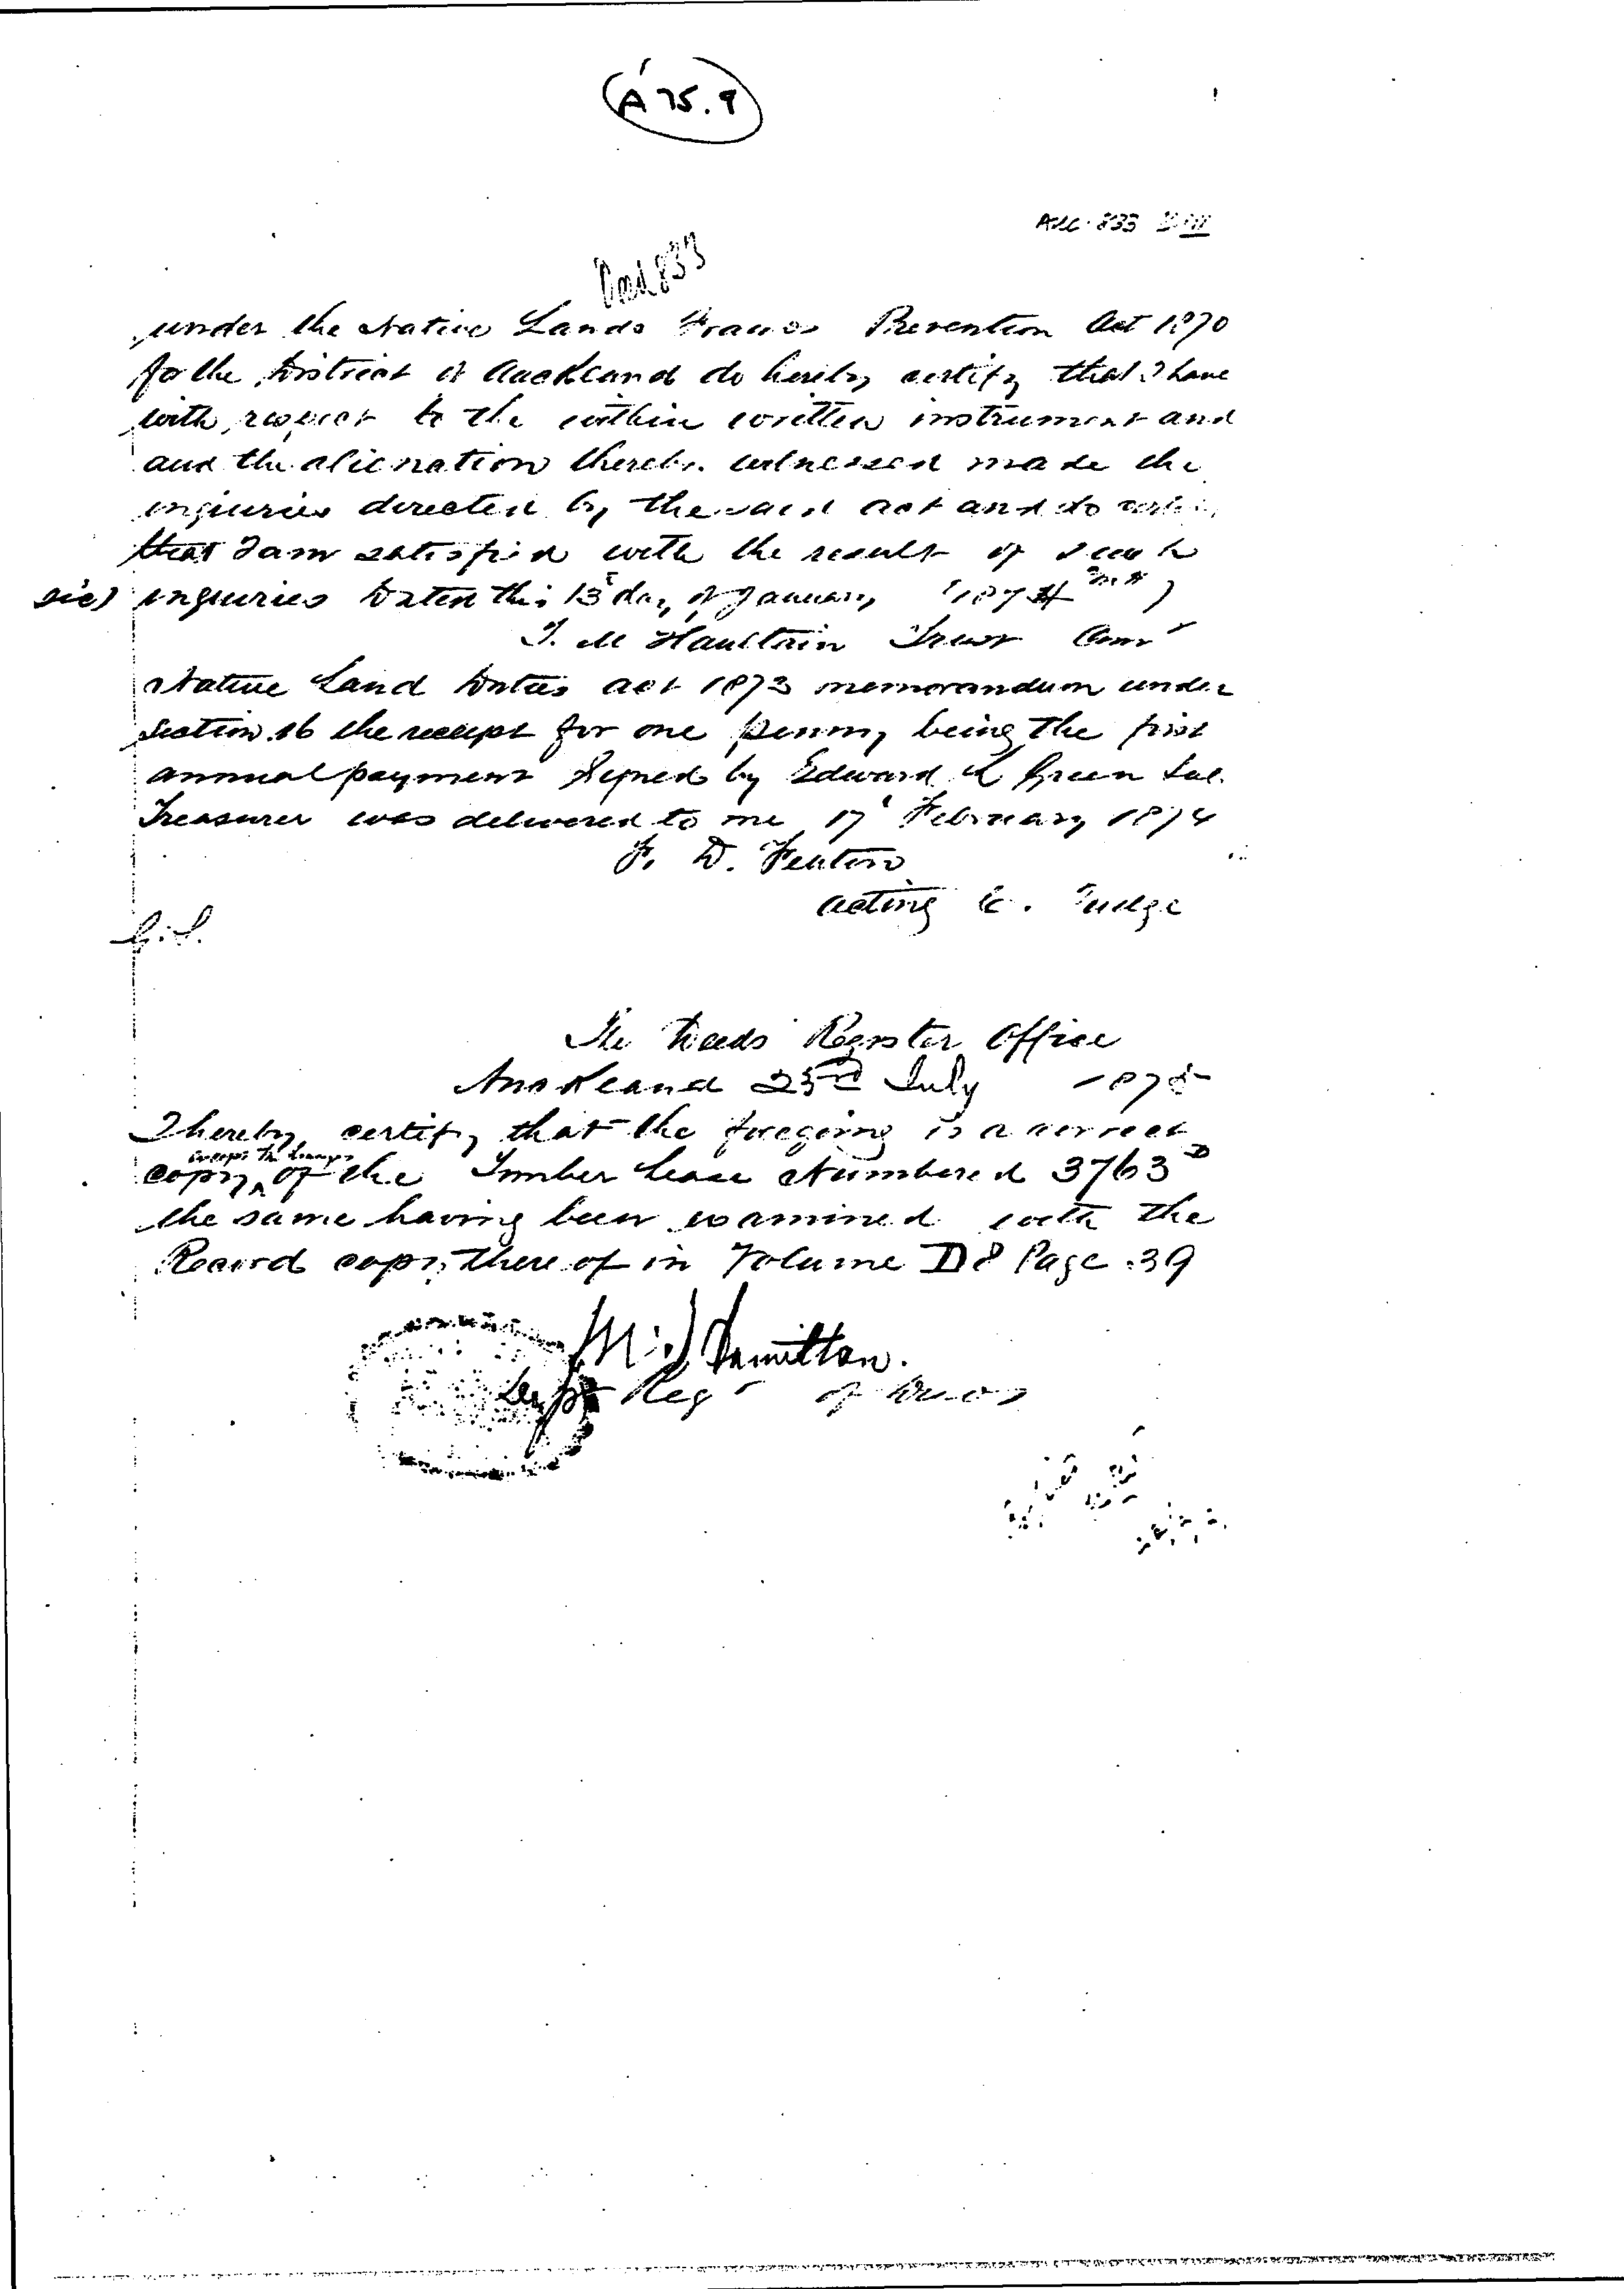 A 75.9
Acc. 833
Oad 833
under the Native Lands Frauds Prevention Act 1870
for the District of Auckland do hereby certify that I have
with respect to the within written instrument and
and the alienation thereby witnessed made the
inquiries directed by the said act and do certify
that I am satisfied with the result of such
sic) inquiries Dated this 13 day of January 1874
T. M Haultain Trust Comr
Native Land Duties act 1873 memorandum under
Section 16 the receipt for one penny being the first
annual payment signed by Edward L Green Sub
Treasurer was delivered to me 17 February 1874
F. D. Fenton
acting C. Judge
The Deeds Register Office
Auckland 23rd July 1875
I hereby certify that the foregoing is a correct
copy of the Timber Lease Numbered 3763 D
the same having been examined with the
Record copy thereof in Volume D8 Page 39
Hamilton.
Dept Regr of Deeds